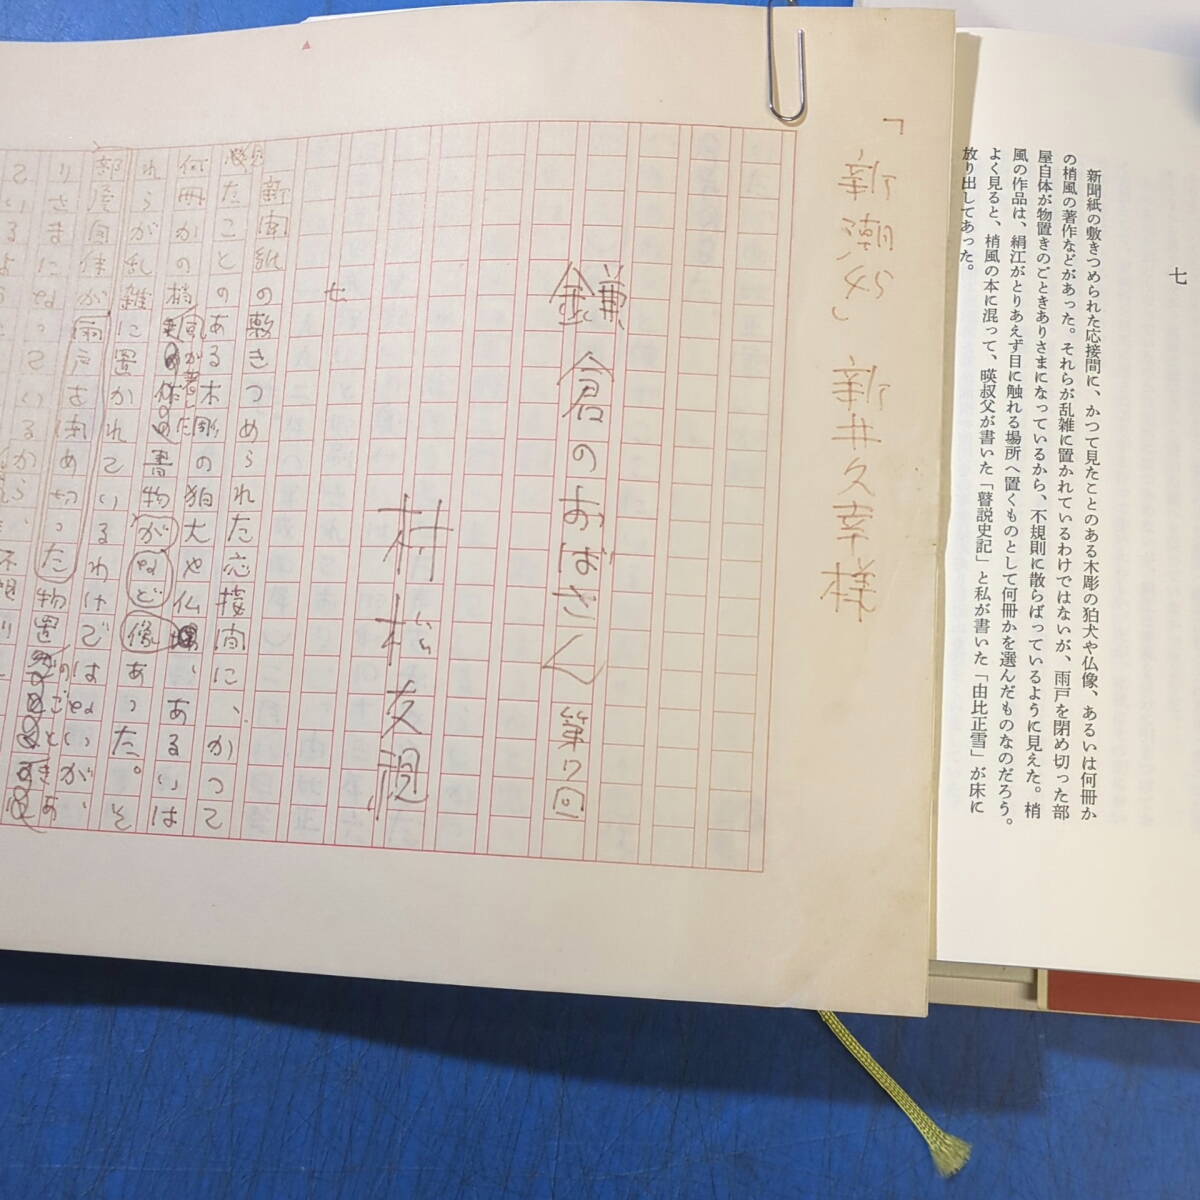 七
新聞紙の敷きつめられた応接間に、かつて見たことのある木彫の狛犬や仏像、あるいは何冊か
の梢風の著作などがあった。それらが乱雑に置かれているわけではないが、雨戸を閉め切った部
屋自体が物置きのごときありさまになっているから、不規則に散らばっているように見えた。梢
風の作品は、絹江がとりあえず目に触れる場所へ置くものとして何冊かを選んだものなのだろう。
よく見ると、梢風の本に混って、暎叔父が書いた「瞽説史記」と私が書いた「由比正雪」が床に
放り出してあった。
「新潮45」 新井久幸様
鎌倉のおばさん 第7回
村松友視
七
新聞紙の敷きつめられた応接間に、かつて
見たことのある木彫の狛犬や仏像、あるいは
何冊かの梢風が著した書物などがあった。そ
れらが乱雑に置かれているわけではないが、
部屋自体が雨戸を閉め切った物置のごときあ
りさまになっているから、不規